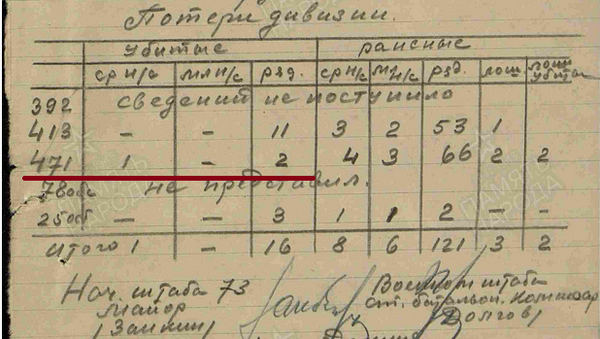 Потери дивизии.
убитые раненые
ср н/с мл н/с ряд. ср н/с мл н/с ряд. лош лош убитых
392 сведений не поступило
413 - - 11 3 2 53 1
471 1 - 2 4 3 66 2 2
78 не представил.
25 - - 3 1 1 2 - -
итого 1 - 16 8 6 121 3 2
Нач. штаба 73 Военком штаба
Майор ст. батальон. Комиссар
/Заикин/ /Долгов/
ПАМЯТЬ НАРОДА